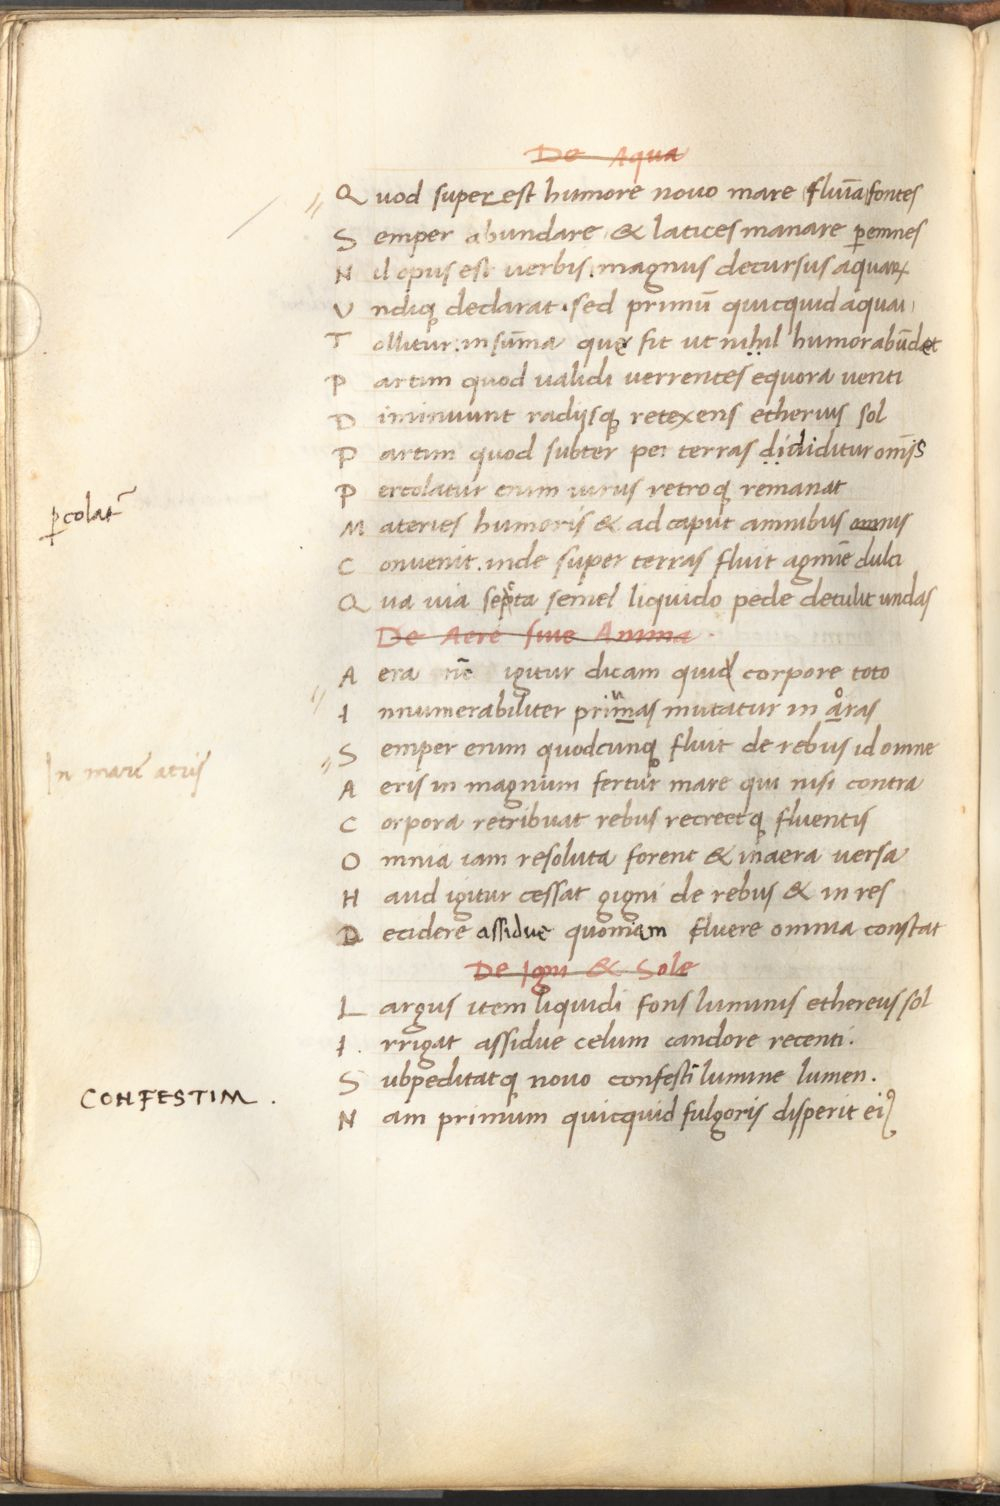 De Aqua
Quod superest humore novo mare fluuīa fontes
Semper abundare & latices manare ꝑemnes
Nil opus est uerbis. magnus decursus aquaꝝ
Vndiqꝫ declarat. sed primū quicquid aquai
Tollitur. in sūma que fit ut nihil humor abūdet
Partim quod ualidi uerrentes equora uenti
Diminuunt radijsqꝫ retexens etherius sol
Partim quod subter per terras dididitur om̄is
ꝑcolat̄
Percolatur enim uirus retroqꝫ remanat
Materies humoris & ad caput amnibus omnis
Conuenit. inde super terras fluit agmīe dulci
Qua uia secta semel liquido pede detulit undas
De Aere siue Anima
Aera nūc igitur dicam quid corpore toto
Innumerabiliter primas mutatur in aoras
Semper enim quodcunqꝫ fluit de rebus id omne
In mare aeris
Aeris in magnum fertur mare qui nisi contra
Corpora retribuat rebus recreetqꝫ fluentis
Omnia iam resoluta forent & in aera uersa
Haud igitur cessat gigni de rebus & in res
Decidere assidue quoniam fluere omnia constat
De Igni & Sole
Largus item liquidi fons luminis ethereus sol
Irrigat assidue celum candore recenti.
Subpeditatqꝫ nouo confestī lumine lumen.
CONFESTIM.
Nam primum quicquid fulgoris disperit eiꝰ